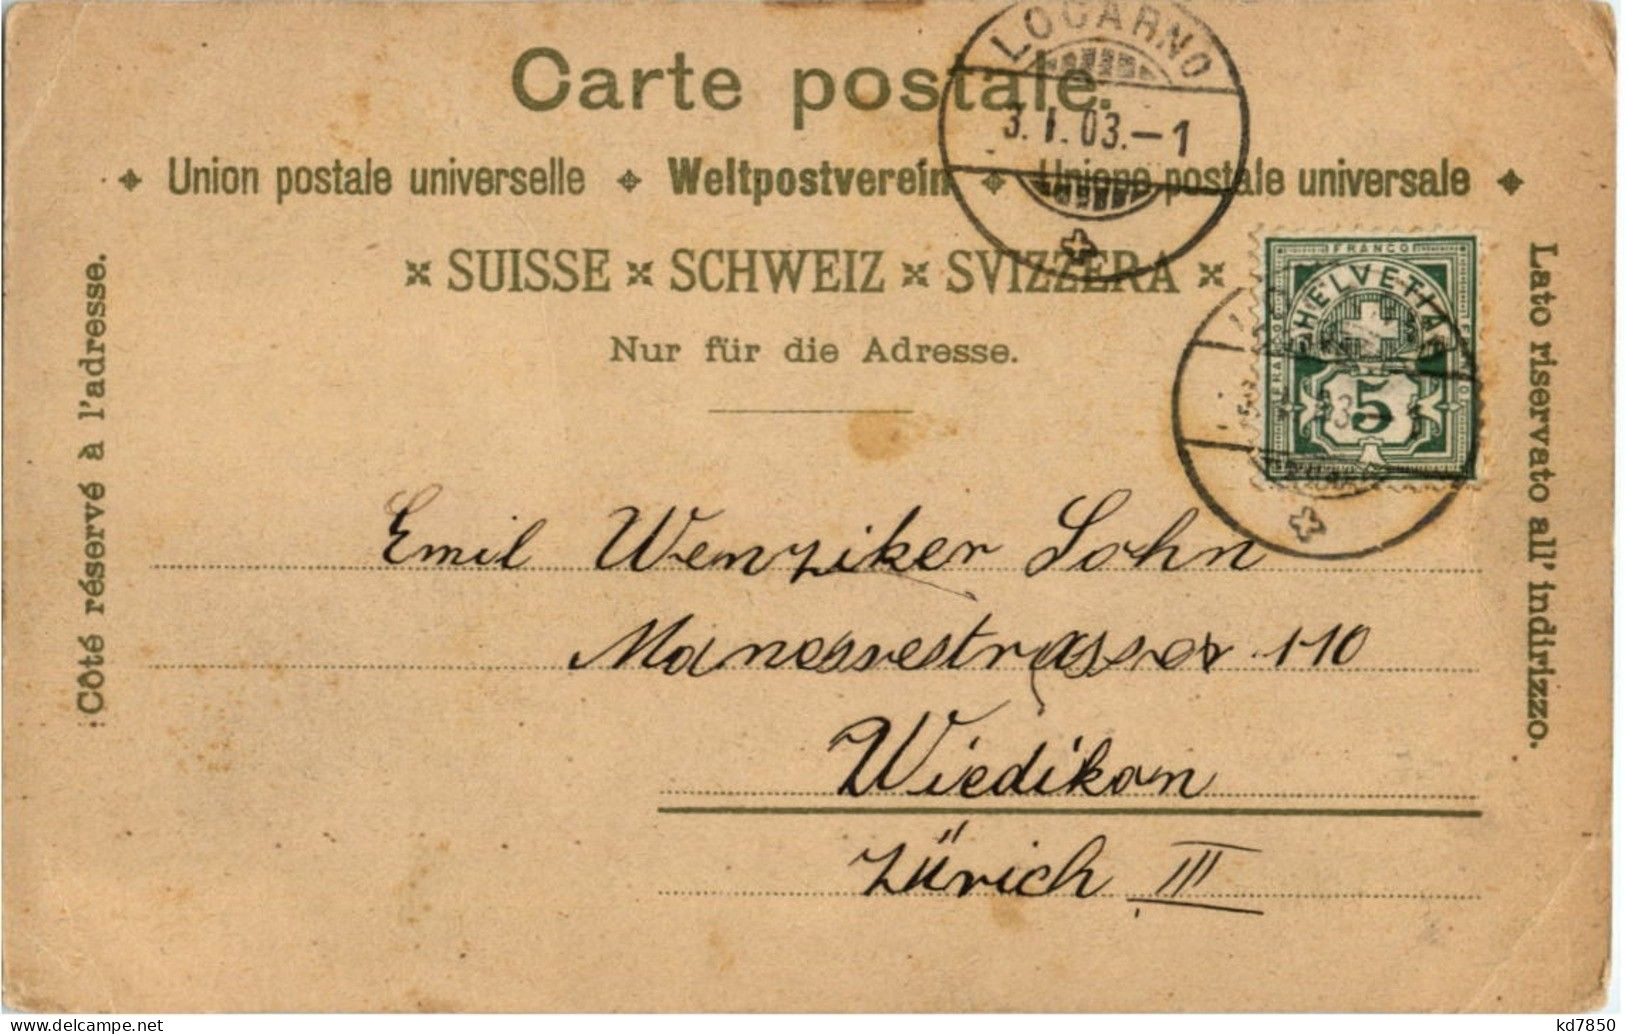 LOCARNO
3. I. 03. – 1
Carte postale.
Union postale universelle Weltpostverein Unione postale universale
SUISSE SCHWEIZ SVIZZERA
Nur für die Adresse.
Côté réservé à l'adresse.
Lato riservato all' indirizzo.
FRANCO
HELVETIA
FRANCO
FRANCO
5
Emil Wenziker Sohn
Manessestrasse 110
Wiedikon
Zürich III
delcampe.net
kd7850